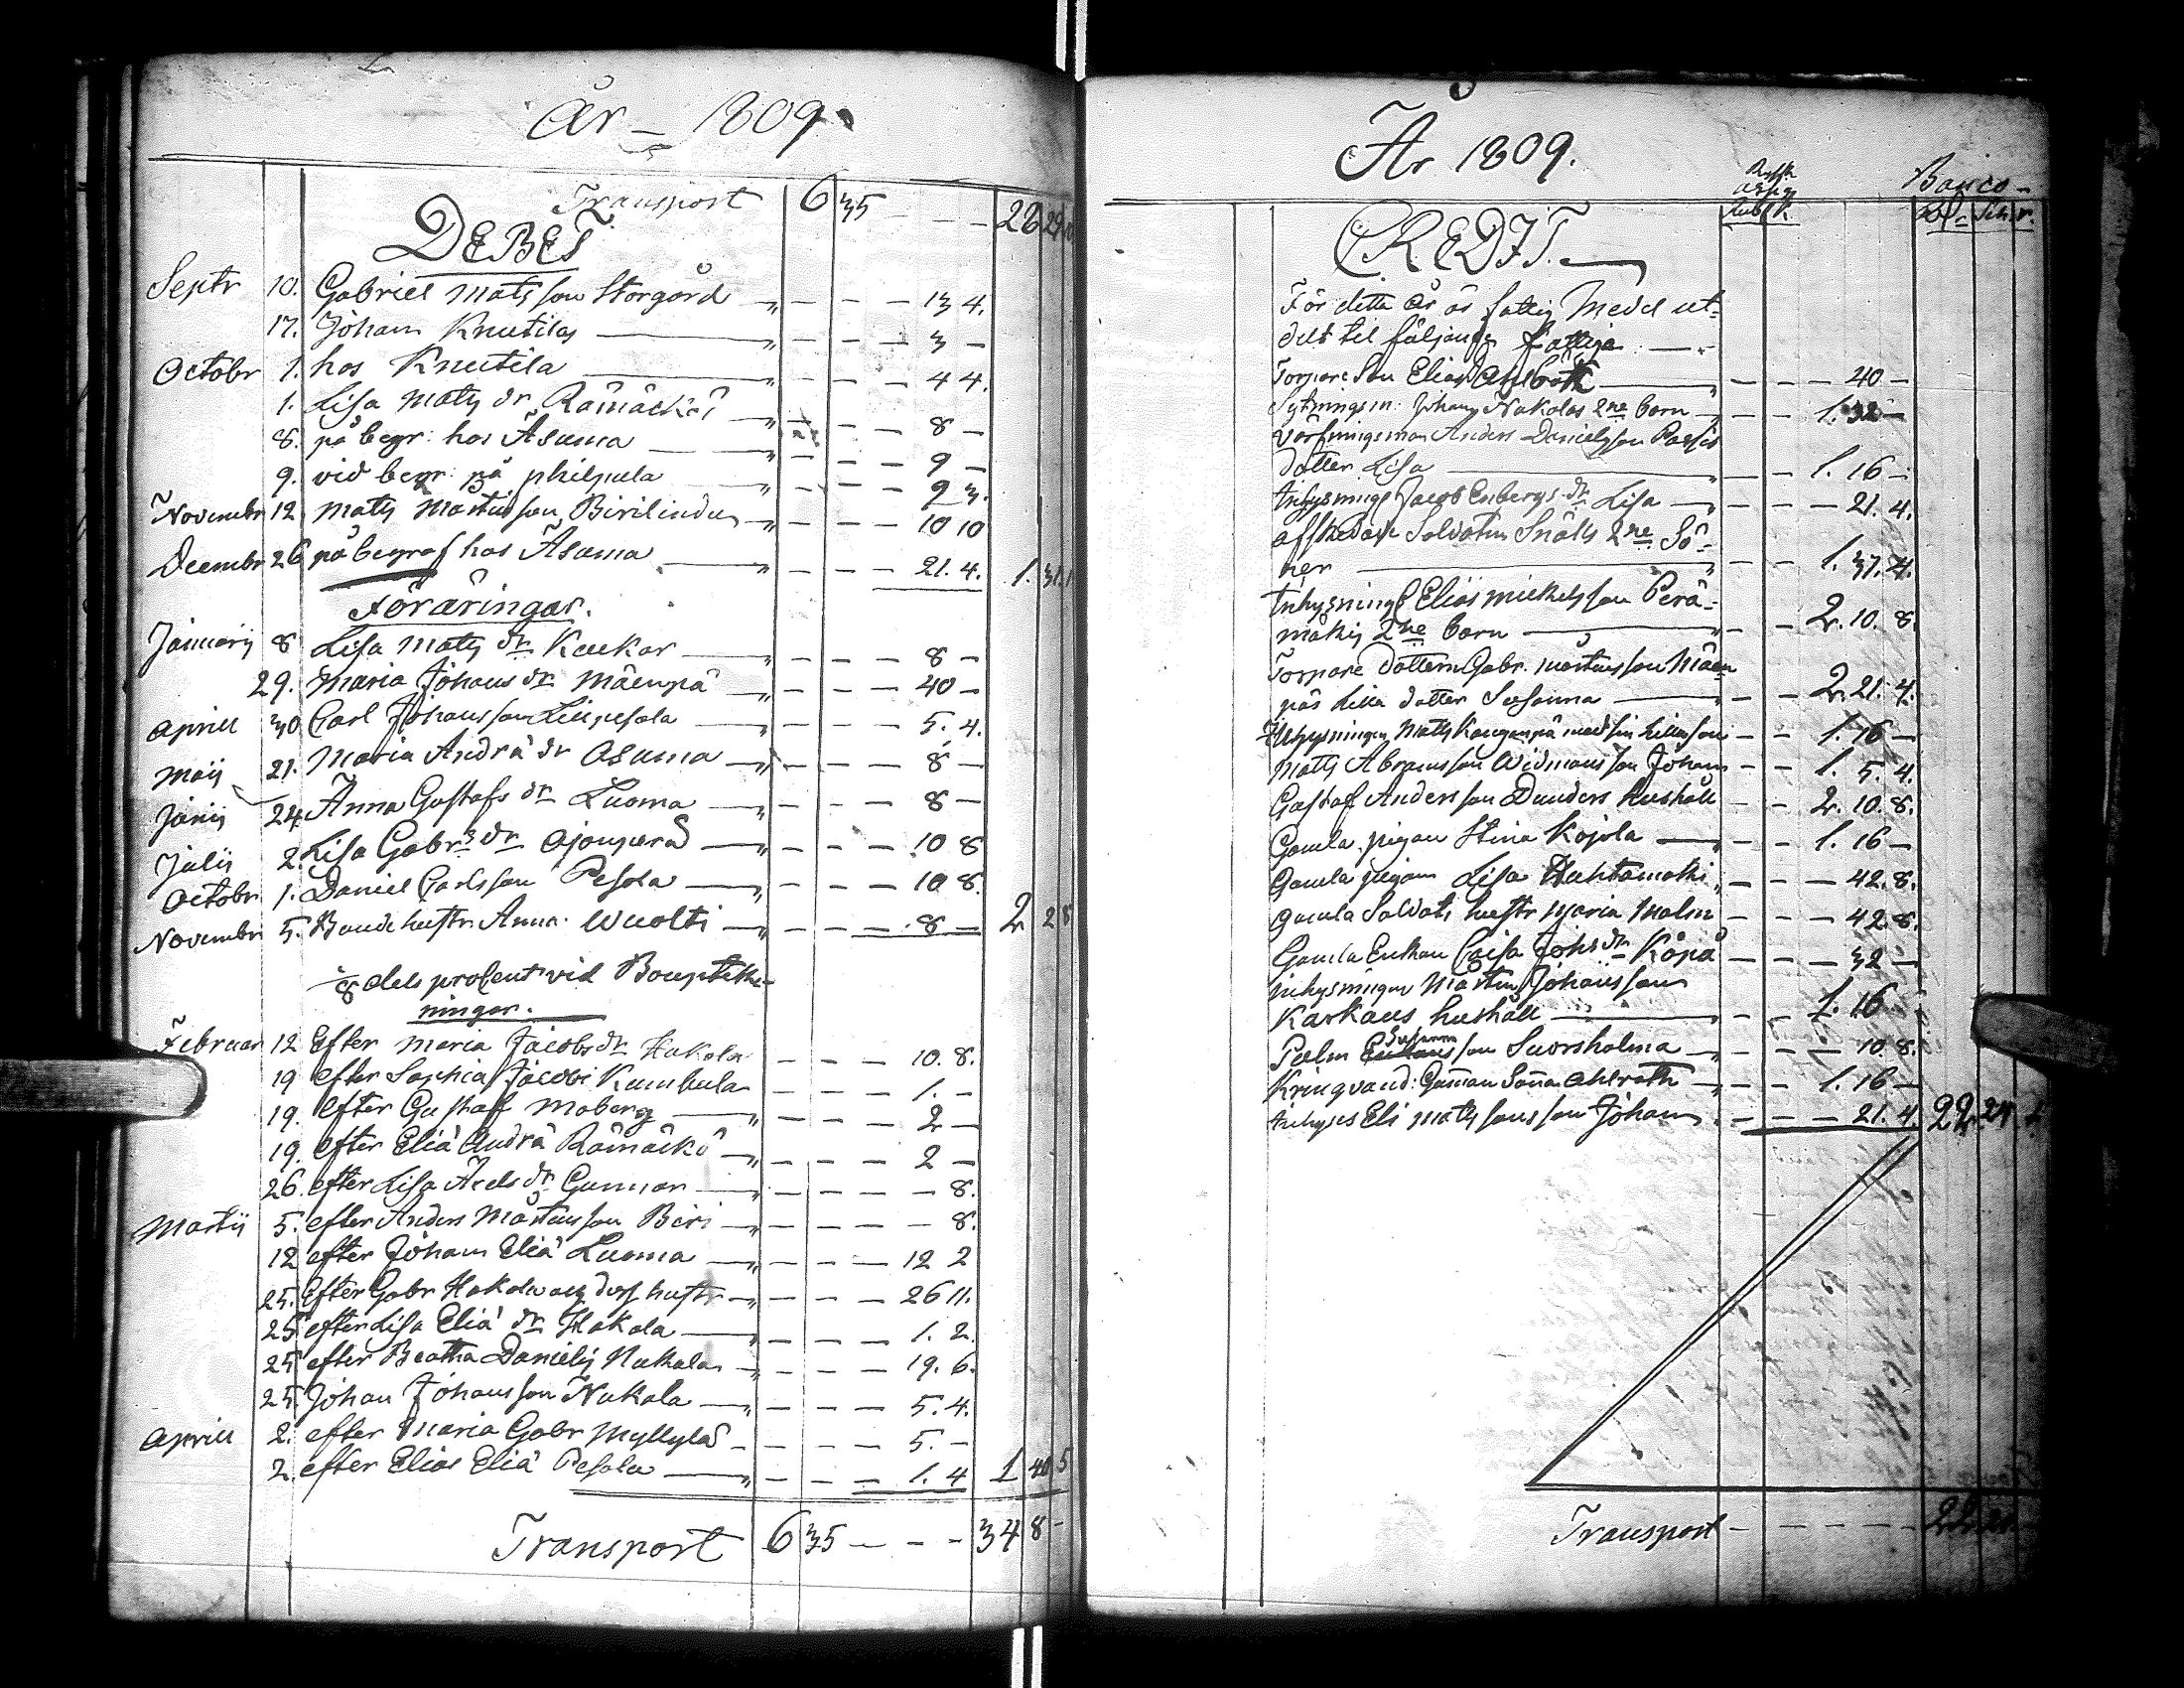 År - 1809.
Transport 6 35 - - - 28 29
DEBET
Septr 10. Gabriel Mats son Storgård " - - - 13 4.
17. Johan Knutilas " - - - 3 -
Octobr 1. hos Knutila " - - - 4 4.
1. Lisa Mats dr Rämäckö " - - - 8 -
8. på begr: hos Åsuma " - - - 9 -
9. vid begr: på philpula " - - - 9 3.
Novembr 12 Mats Mårtinson Birilindu " - - - 10 10
Decembr 26 på begraf hos Åsuma " - - - 21. 4. 1. 31. 1
Föräringar.
Januarij 8 Lisa Mats dr Kaukar " - - - 8 -
29. Maria Johans dr Mäenpä " - - - 40 -
Aprill 30 Carl Johansson Liupesola " - - - 5. 4.
Maij 21. Maria Andrä dr Asuma " - - - 8 -
Junij 24 Anna Gustafs dr Luoma " - - - 8 -
Julii 2. Lisa Gabrs dr Ajonperä " - - - 10 8
Octobr 1. Daniel Carlsson Pesola " - - - 10 8.
Novembr 5. Bonde hustr. Anna Wuolti " - - - 8 - 2 28
1/8 dels procent vid Boupteck-
ningar.
Februar 12 Efter Maria Jacobs dr Hakola - - - 10. 8.
19 efter Sophia Jacobi Kumbula - - - 1. -
19. efter Gustaf Moberg " - - - 2 -
19. efter Eliä Andrä Rämäckö " - - - 2 -
26. efter Lisa Axels dr Gunnar " - - - 8.
Martii 5. efter Anders Mårtensson Biri " - - - 8.
12 efter Johan Eliä Luoma " - - - 12 2
25. Efter Gabr Hakolw hustr " - - - 26 11.
25 efter Lisa Eliä dr Hakola " - - - 1. 2.
25 efter Beatha Danielij Nukala " - - - 19. 6.
25. Johan Johansson Nukala " - - - 5. 4.
Aprill 2. efter Maria Gabr Myllylä - - - - 5. -
2. efter Elias Eliä Pesola " - - - 1. 4 1 40 5
Transport 6 35 - - - 34 8 -
År 1809.
Rubl K. Banco -
CREDIT.
För detta år äs fattig Medel ut-
delt til följande fattiga: -
Torpare Son Elias Ahlbäck " - - - 40 -
Sytningsm: Johan Nukolas 2ne barn - - - 1. 32 -
Anders Danielsson Passis
dotter Lisa " - - 1. 16 -
Inhysning Jacob Enbergs dr Lisa - - - - 21. 4.
afskedade Soldaten Snälls 2ne Sö-
ner " - - 1. 37. 4.
Inhysning Elias Mickelsson Perä-
mäkis 2ne barn " - - 2. 10. 8.
Torpare dottern Gabr. Mårtensson Mäen-
päs lilla dotter Susanna - - 2. 21. 4.
Inhysningen Mats Kangenpä med sin lilla son - - 1. 16 -
Mats Abramsson Widmans son Johan - - 1. 5. 4.
Gustaf Andersson Dunders hushåll - - 2. 10. 8.
Gamla pigan Stina Kojola - - - 1. 16 -
Gamla pigan Lisa Huhtamäki " - - - 42. 8.
gamla Soldats hustr Maria Malm - - - 42. 8.
Gamla Enkan Caisa Johs dr Köpä - - - 32 -
inhysningen Mårten Johansson
Karkaus hushåll " - - 1. 16
Palm Susanna son Suorsholma " - - - 10. 8.
Kringvand: Gumman Sanna Ahlroth " - - 1. 16 -
Inhyses Eli Matssons son Johan - - - 21. 4. 22 24
Transport - - - - - 22